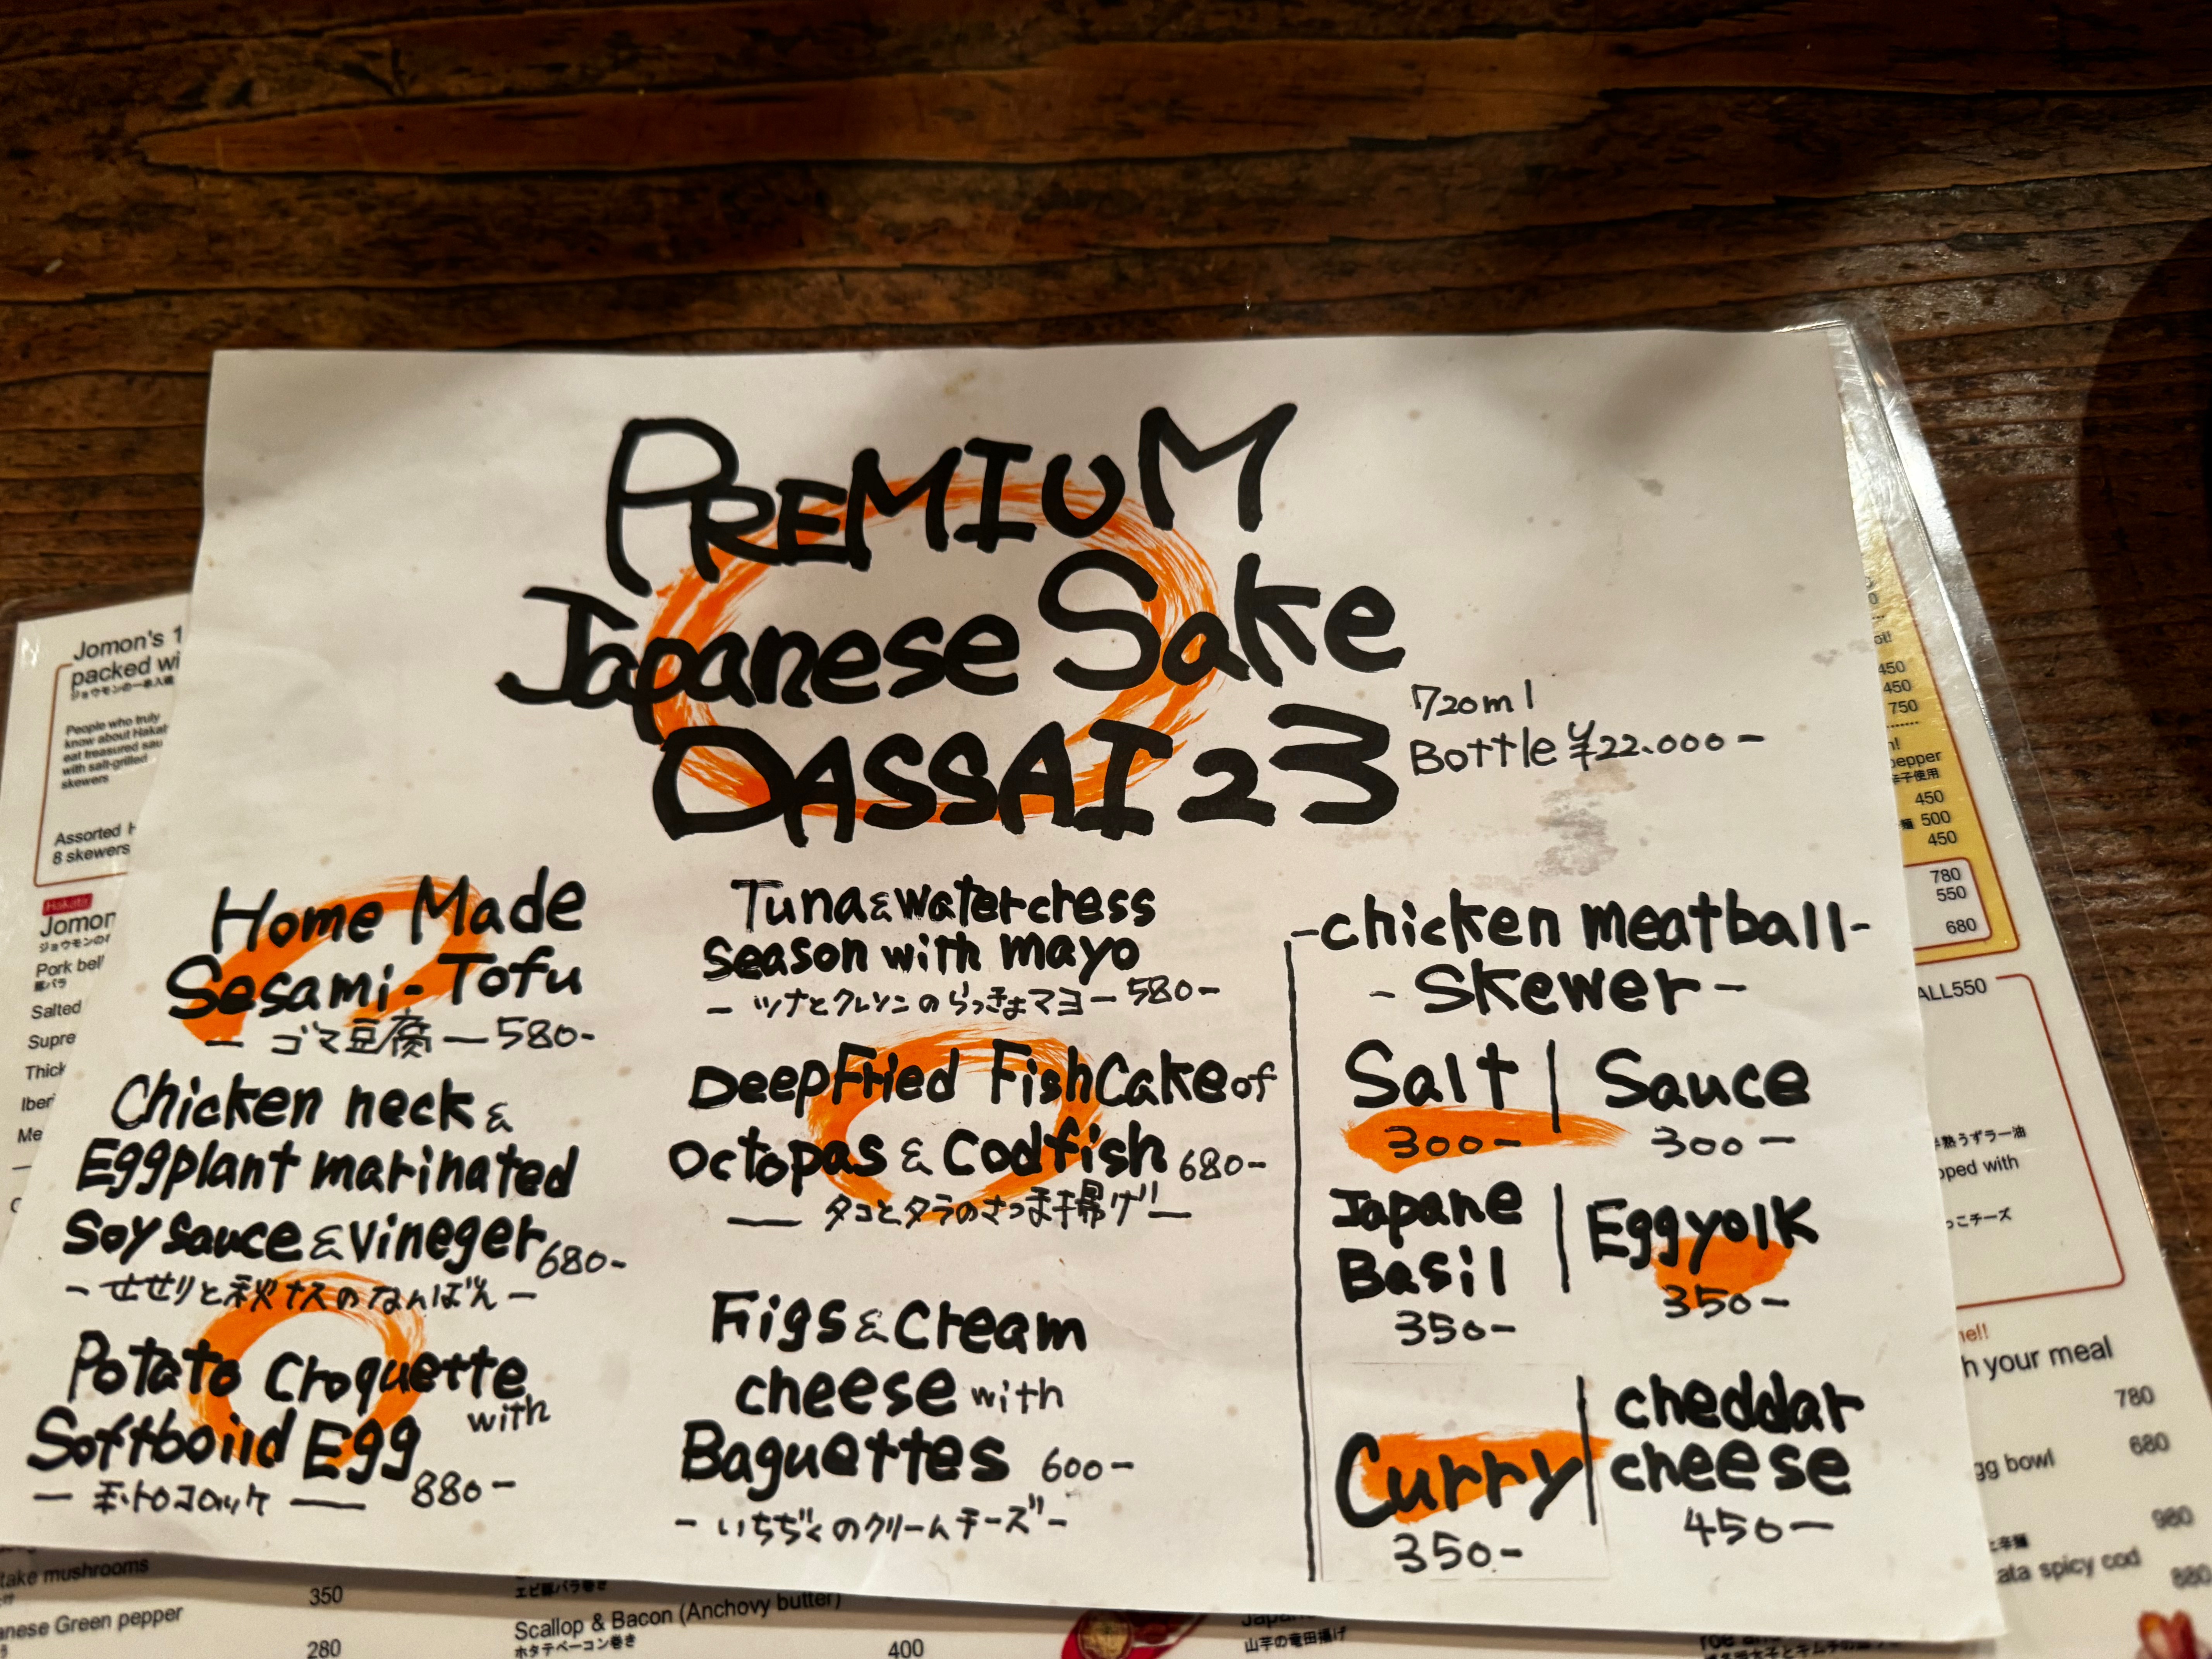 PREMIUM
Japanese Sake
DASSAI 23
720ml
Bottle ¥22.000-
Home Made
Sesami-Tofu
- ゴマ豆腐 - 580-
Chicken neck &
Eggplant marinated
Soy sauce & vineger 680-
- せせりと秋ナスのなんばん -
Potato Croquette
with
Softboild Egg
880-
Tuna & watercress
season with mayo
- ツナとクレソンのらっきょマヨ - 580-
Deep Fried Fish Cake of
Octopas & Codfish 680-
- タコとタラのさつま揚げ -
Figs & Cream
cheese with
Baguettes 600-
- いちぢくのクリームチーズ -
-chicken meatball-
- Skewer -
Salt | Sauce
300- 300-
Japane
Basil | Egg yolk
350- 350-
Curry | cheddar
cheese
350- 450-
Jomon's 1
packed wi
People who truly
know about Hakat
eat treasured sau
with salt-grilled
skewers
Assorted H
8 skewers
Hakata
Jomon
Pork bel
豚バラ
Salted
Supre
Thick
Iberi
Me
take mushrooms
350
anese Green pepper
280
エビ豚バラ巻き
Scallop & Bacon (Anchovy butter)
ホタテベーコン巻き
400
山芋の竜田揚げ
450
450
750
pepper
辛子使用
450
500
450
780
550
680
ALL550
半熟うずラー油
pped with
っこチーズ
h your meal
780
gg bowl
680
980
ata spicy cod
880